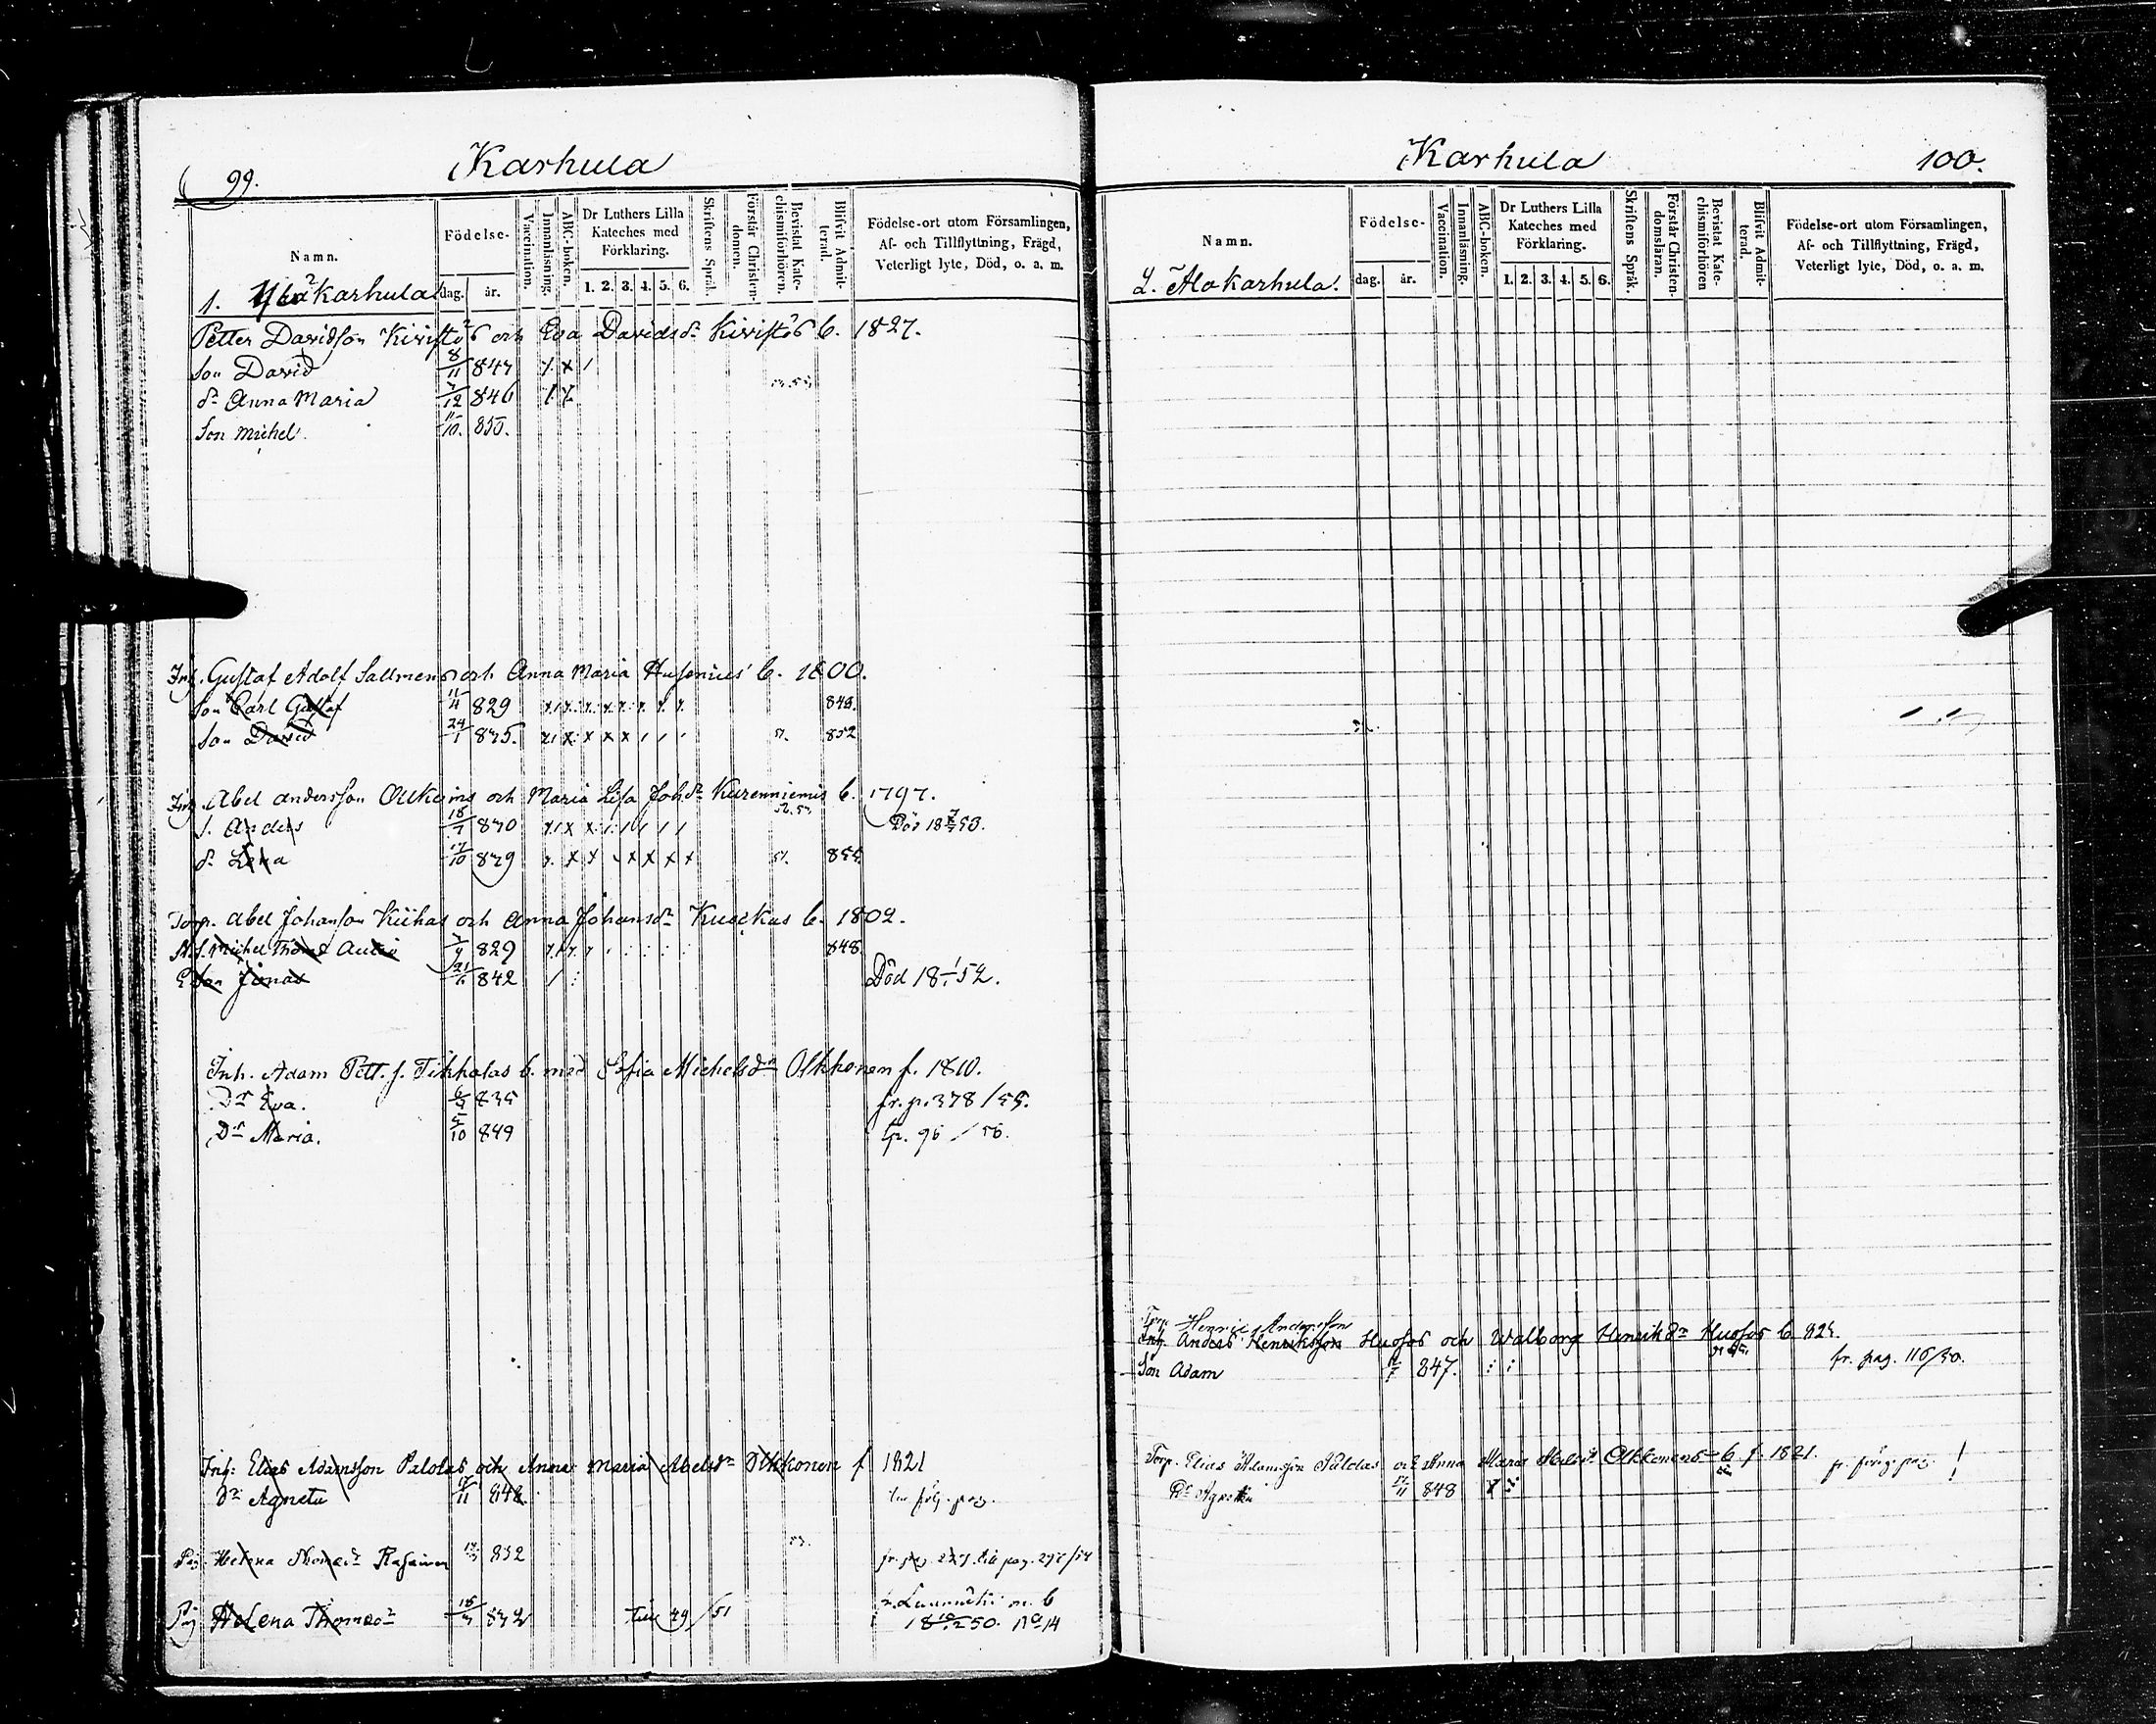 99.
Karhula
Namn.
Födelse-
dag.
år.
Vaccination.
Innanläsning.
ABC-boken.
Dr Luthers Lilla
Kateches med
Förklaring.
1. 2. 3. 4. 5. 6.
Skriftens Språk.
Förstår Christen-
domen.
Bevistat Kate-
chismiförhören.
Blifvit Admit-
terad.
Födelse-ort utom Församlingen,
Af- och Tillflyttning, Frägd,
Veterligt lyte, Död, o. a. m.
1. Ylä Karhula
Petter Davidson Kiristös och Eva Davidsdr Kiristös b. 1827.
Son David 8/11 847
dr Anna Maria 7/12 846
Son Michel 11/10. 850.
Inh. Gustaf Adolf Sallmens och Anna Maria Husenius b. 1800.
Son Carl Gustaf 11/4 829 848.
Son David 24/1 835. 51. 852
Inh. Abel andersson och Maria Lisa Johdr Kurenniemis b. 1797.
S. Anders 18/7 830 Död 53.
dr Lena 17/10 839 51. 855
Torp. Abel Johanson Kiihas och Anna Johansdr b. 1802.
Michel Thomas 829 848.
Son Jonas 21 842 Död 18 52.
Inh. Adam Pett. s. Tikkalas b. med Sofia Michelsdr Olkkonen f. 1810.
Dr Eva. 835 fr. p. 378/55.
Dr Maria. 5/10 849 fr. 96/56.
Inh: Elias Adamsson Palolas och Anna Maria Abelsdr Olkkonen f 1821
Dr Agneta 17/11 848. följ. pag.
Pig. Helena Thomasdr 832 53. till pag. 297/54
Pig Helena Thomasdr 832 till 79/51
18 50. No 14
Karhula
100.
Namn.
Födelse-
dag.
år.
Vaccination.
Innanläsning.
ABC-boken.
Dr Luthers Lilla
Kateches med
Förklaring.
1. 2. 3. 4. 5. 6.
Skriftens Språk.
Förstår Christen-
domsläran.
Bevistat Kate-
chismiförhören
Blifvit Admit-
terad.
Födelse-ort utom Församlingen,
Af- och Tillflyttning, Frägd,
Veterligt lyte, Död, o. a. m.
2. Ala Karhula.
Torp. Henric Andersson
Inh. Anders Henriksson Huofos och Walborg Henrikdr Huofos b. 825.
Son Adam 847. fr. pag. 116/50.
Torp. Elias Adamsson Palolas och Anna Maria Abelsdr Olkkonens b f. 1821. fr. förig. pag.
Dr Agneta 17/11 848